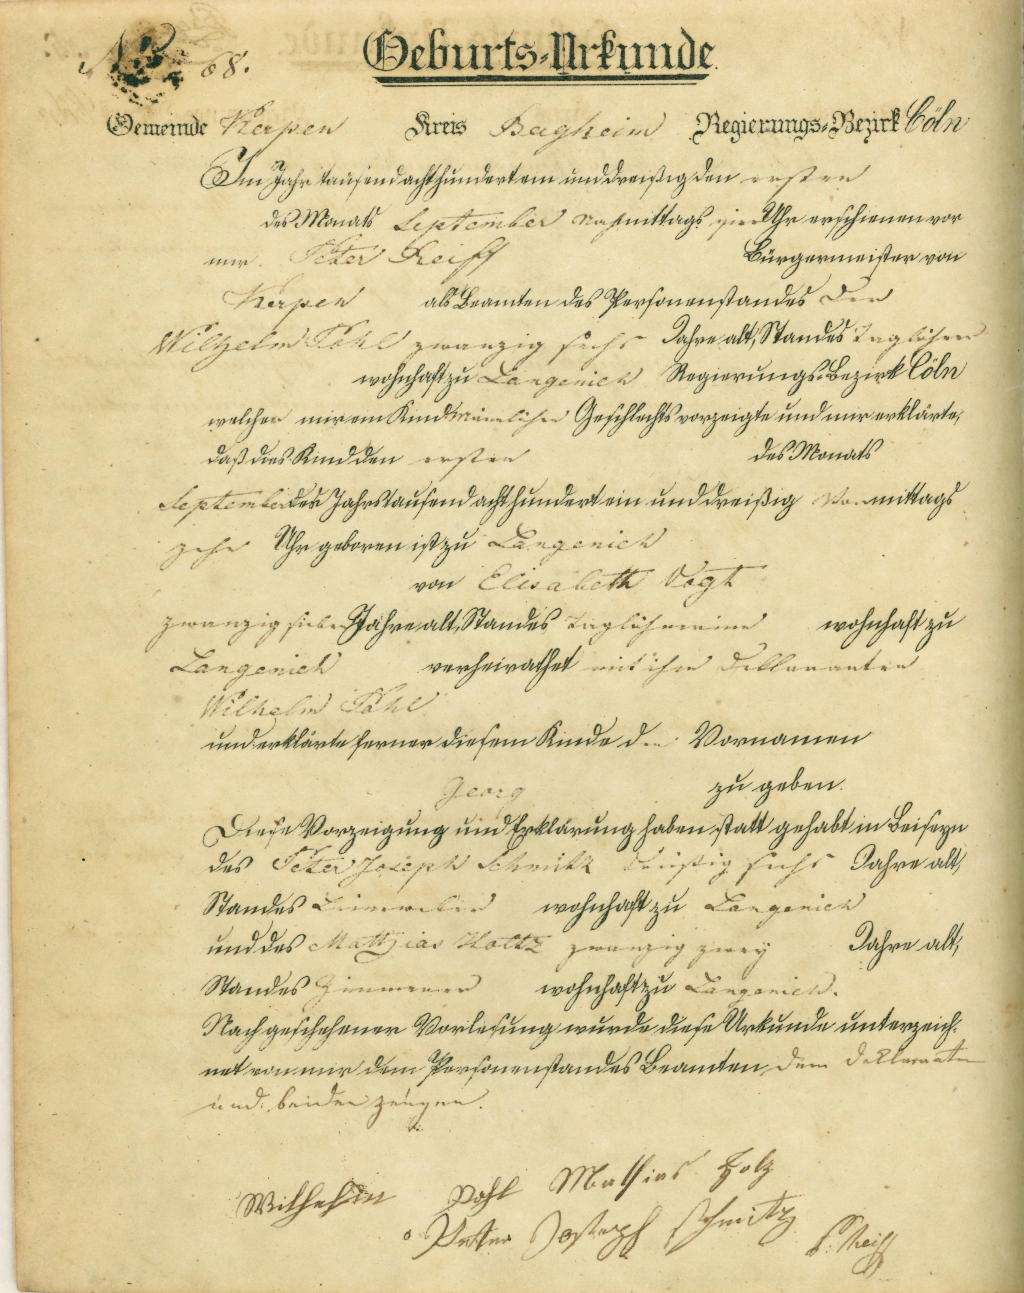 88.
Geburts-Urkunde.
Gemeinde Kerpen Kreis Bergheim Regierungs-Bezirk Cöln
Im Jahr tausend achthundert ein und dreißig den ersten
des Monats September nachmittags vier Uhr erschienen vor
mir Peter Reiff Bürgermeister von
Kerpen als Beamten des Personenstandes der
Wilhelm Pohl zwanzig sechs Jahre alt, Standes Taglöhner
wohnhaft zu Langenich Regierungs-Bezirk Cöln
welcher mir ein Kind männlichen Geschlechts vorzeigte und mir erklärte,
daß dies Kind den ersten des Monats
September des Jahrs tausend achthundert ein und dreißig Vormittags
zehn Uhr geboren ist zu Langenich
von Elisabeth Vogt
zwanzig sieben Jahre alt, Standes Taglöhnerinn wohnhaft zu
Langenich verheirathet mit ihm Deklaranten
Wilhelm Pohl
und erklärte ferner diesem Kinde den Vornamen
Georg zu geben.
Diese Vorzeigung und Erklärung haben statt gehabt in Beiseyn
des Peter Joseph Schmitz dreißig sechs Jahre alt,
Standes Leinweber wohnhaft zu Langenich
und des Mathias Holtz zwanzig zwey Jahre alt,
Standes Zimmerer wohnhaft zu Langenich.
Nach geschehener Vorlesung wurde diese Urkunde unterzeich-
net von mir dem Personenstandes Beamten, dem Deklaranten
und beiden Zeugen.
Wilhelm Pohl Mathias Holz
Peter Joseph Schmitz P. Reiff